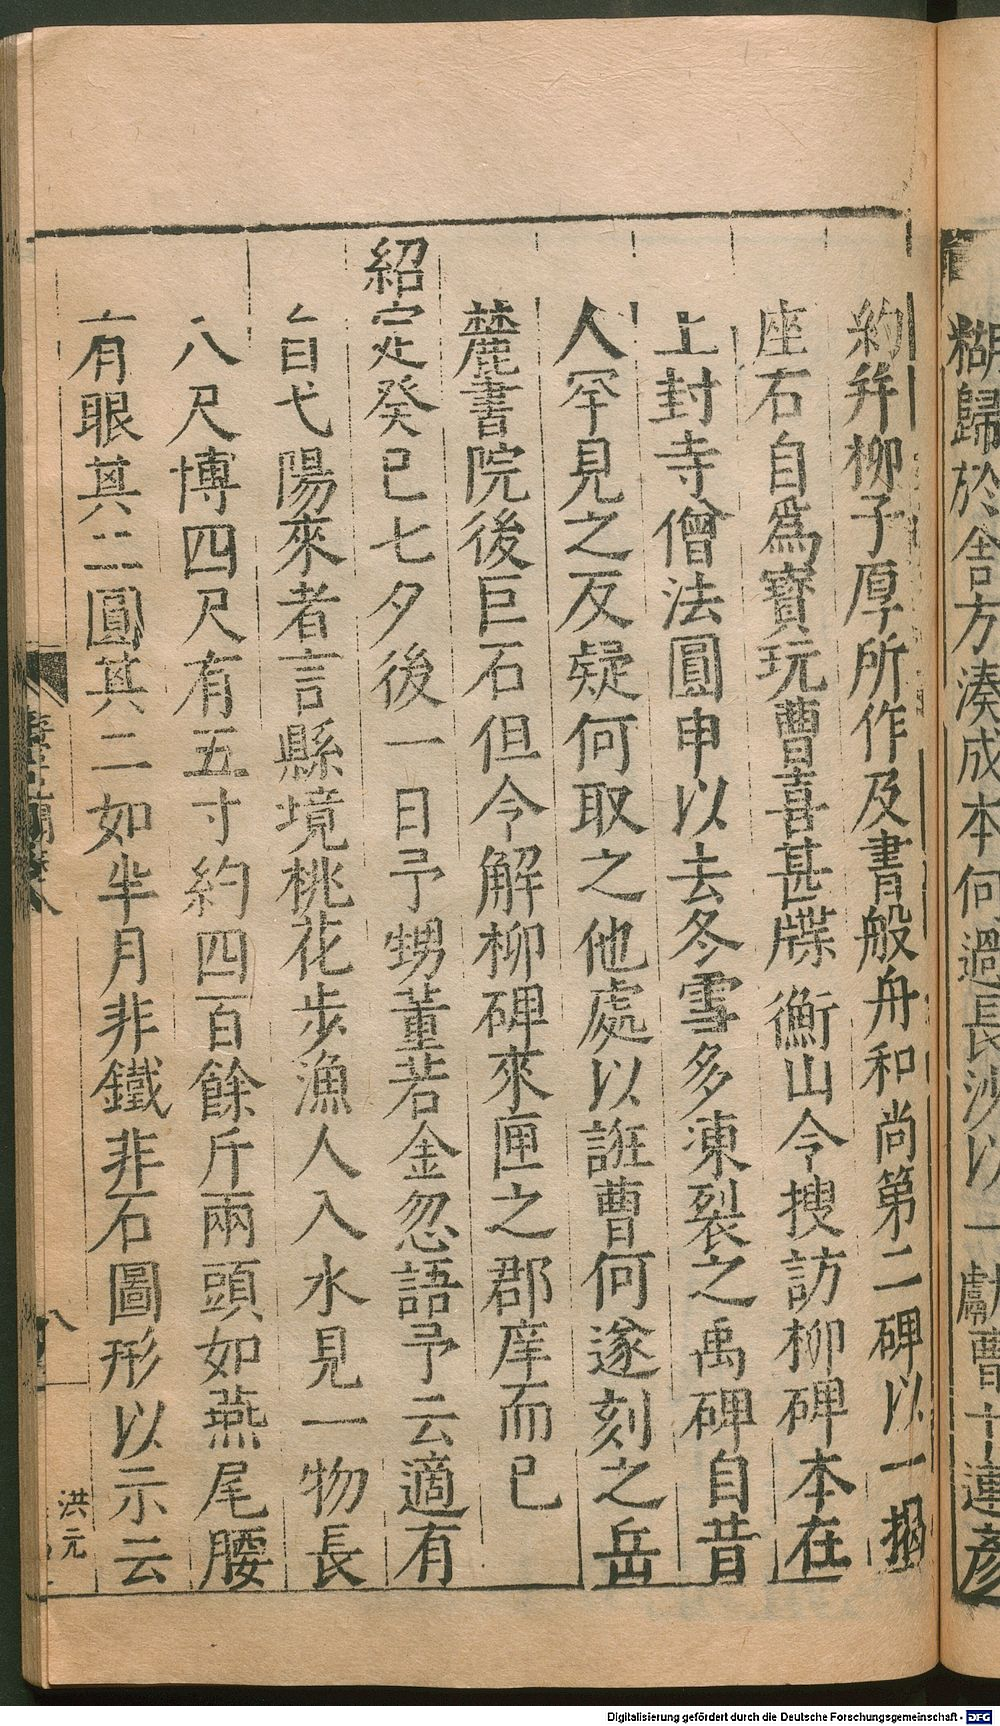 糊歸於舍方湊成本何過長沙以一獻曹十連彥
約并柳子厚所作及書般舟和尚第二碑以一揭
座石自爲寳玩曹喜甚牒衡山令搜訪柳碑本在
上封寺僧法圓申以去冬雪多凍裂之禹碑自昔
人罕見之反疑何取之他處以誑曹何遂刻之岳
麓書院後巨石但令解柳碑來匣之郡庠而已
紹定癸巳七夕後一日予甥董若金忽語予云適有
自弋陽來者言縣境桃花步漁人入水見一物長
八尺博四尺有五寸約四百餘斤兩頭如燕尾腰
有眼其二圓其二如半月非鐵非石圖形以示云
八
洪元
Digitalisierung gefördert durch die Deutsche Forschungsgemeinschaft - DFG